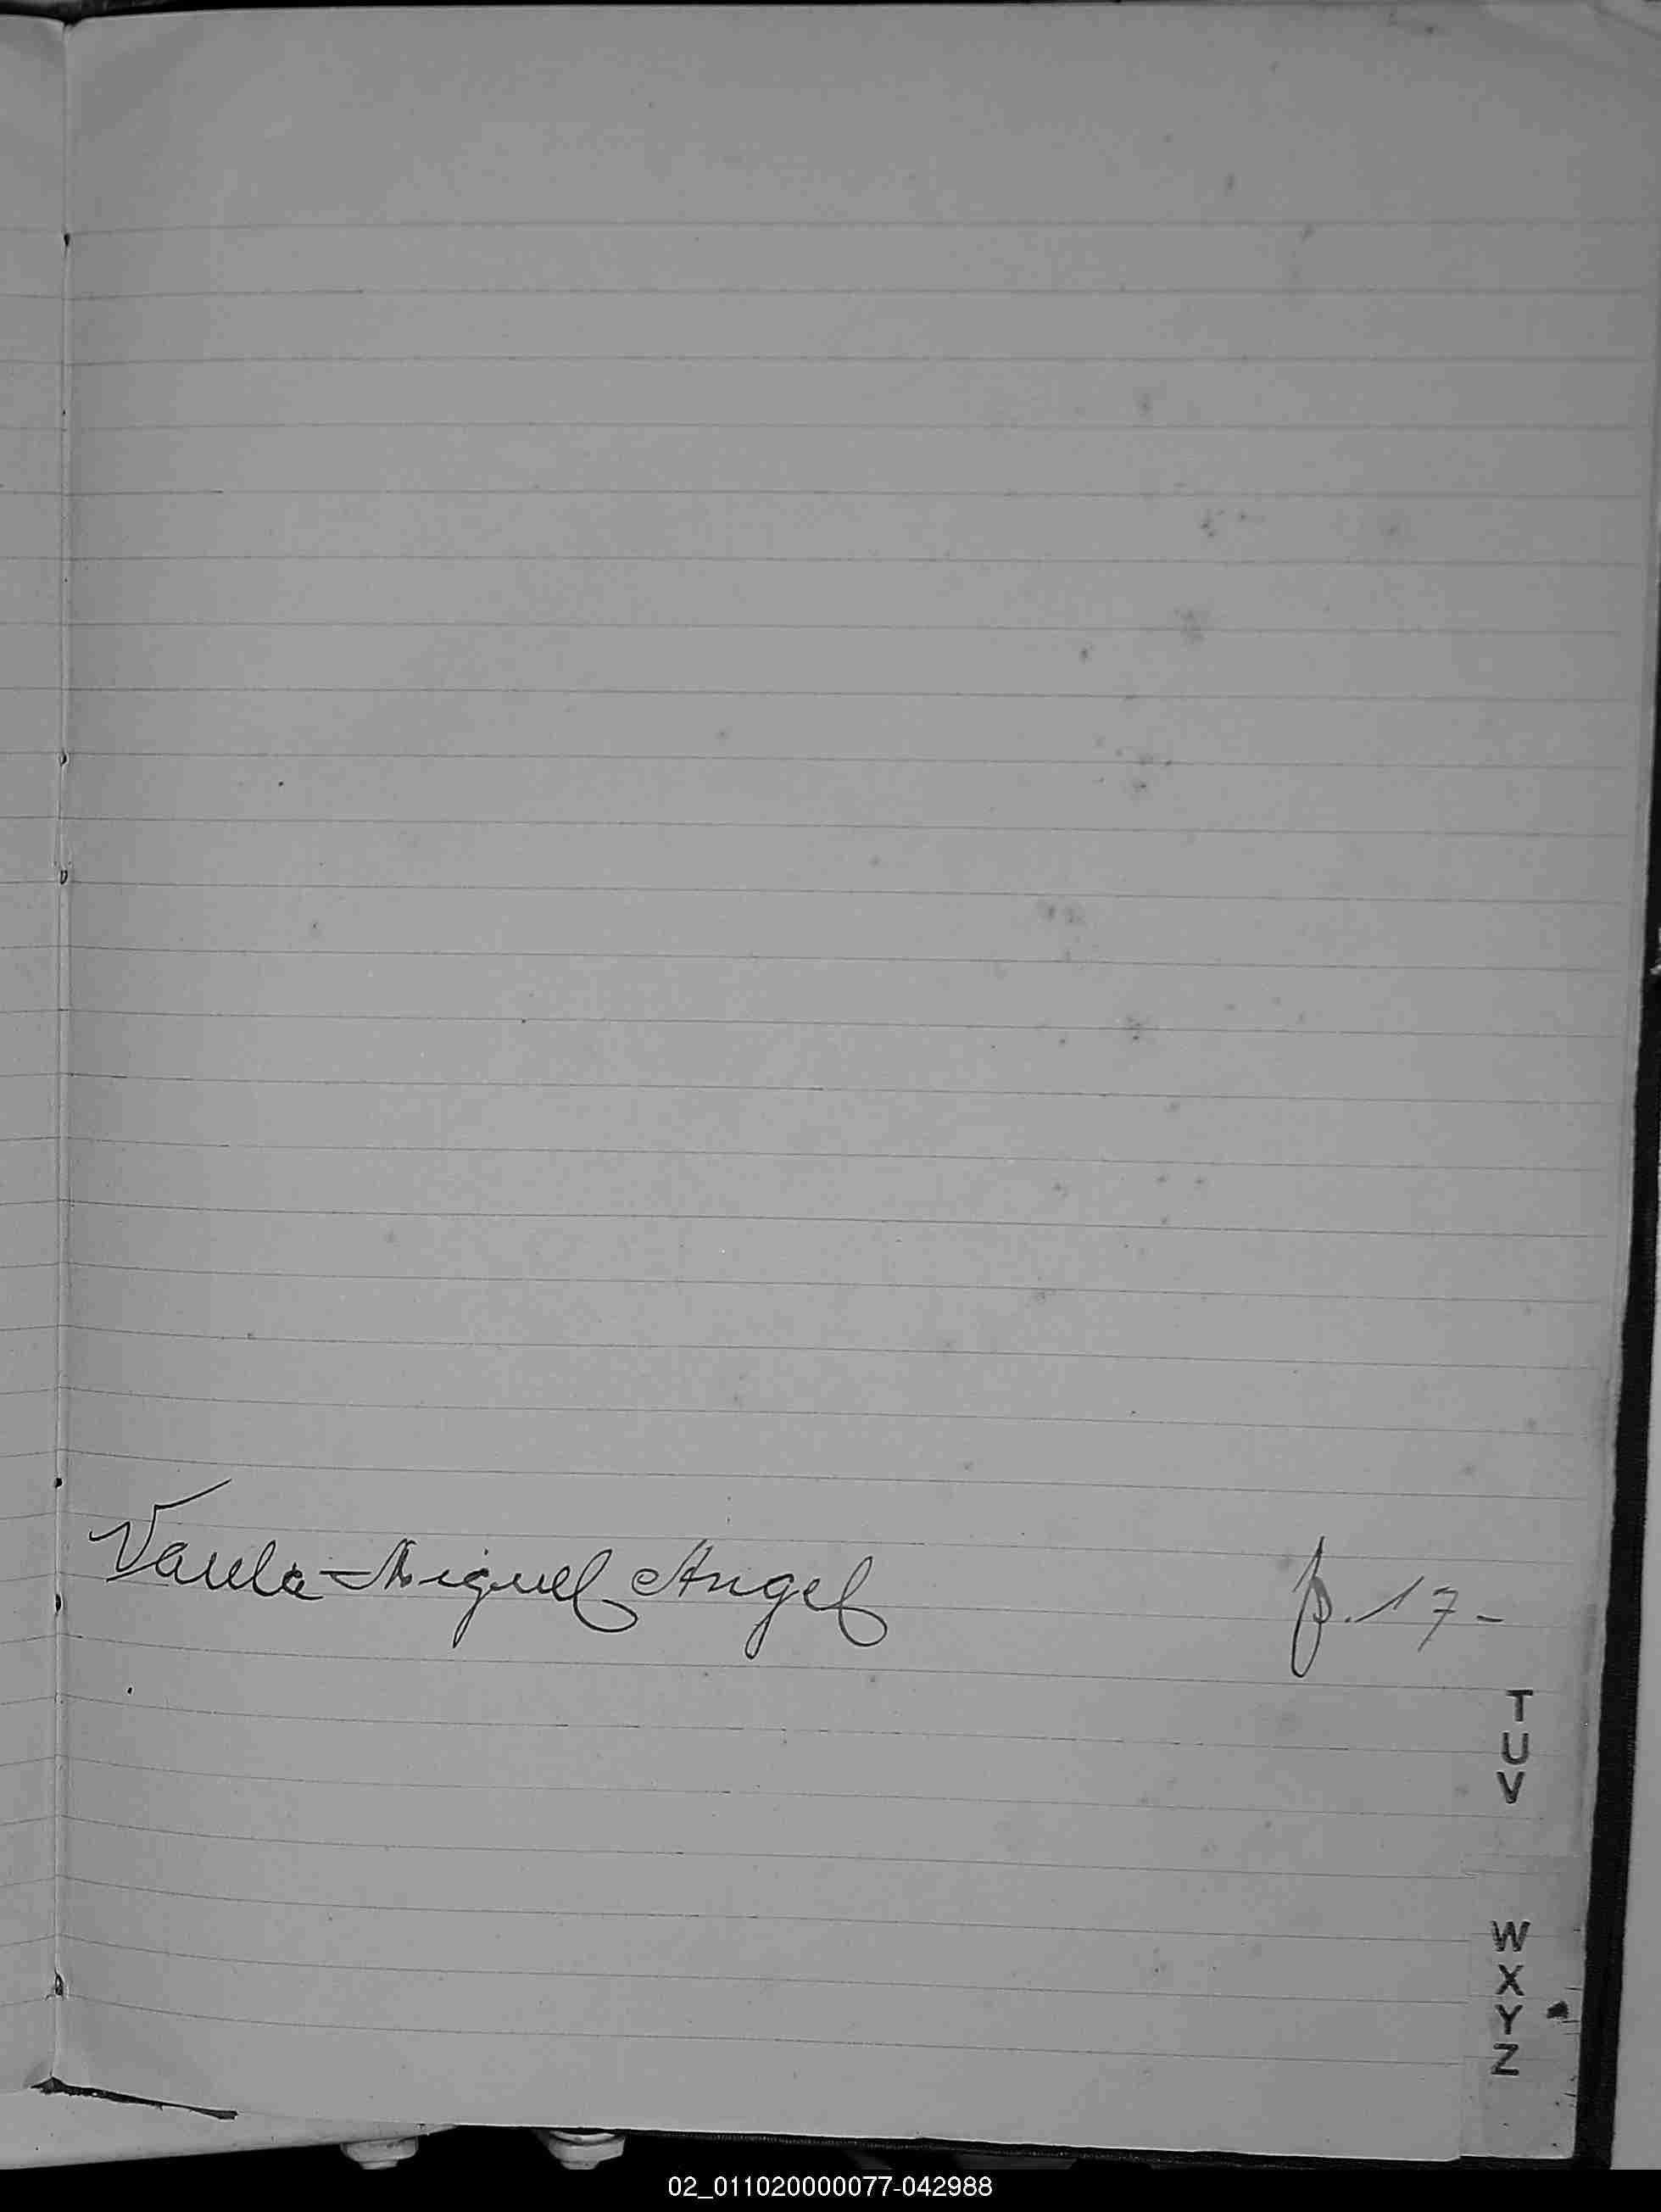 Varela - Miguel Angel p. 17 -
T
U
V
W
X
Y
Z
02_011020000077-042988